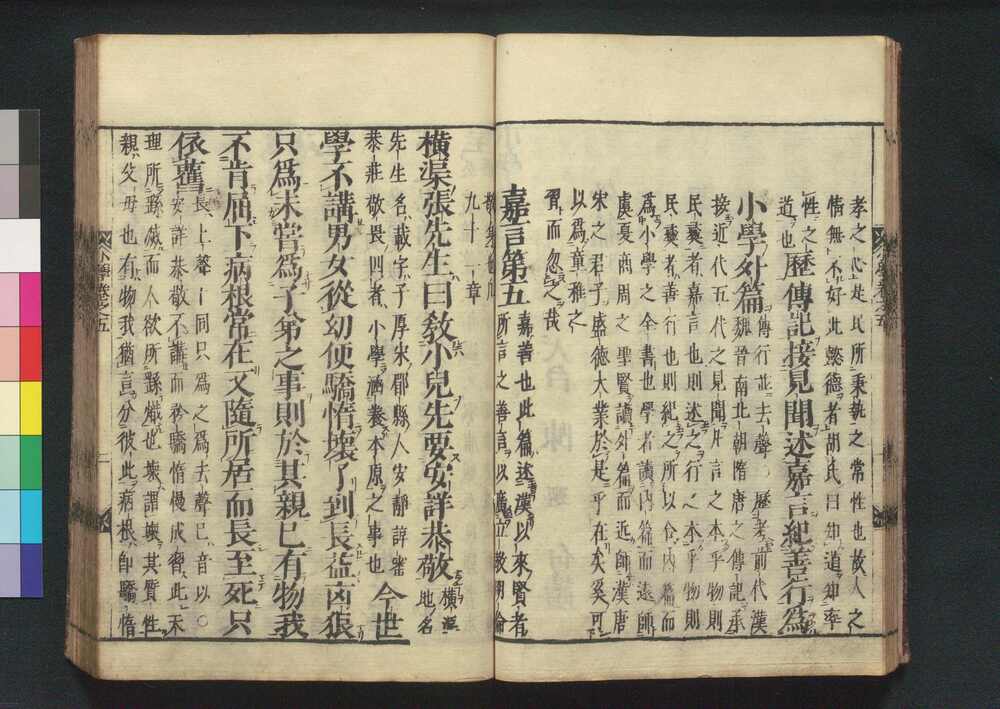 孝之心是民所秉執之常性也故人之
情無不好此懿德者胡氏曰卽道卽率
性之
道也
歷傳記接見聞述嘉言紀善行爲
小學外篇
傳行並去聲○歷考前代漢
魏晉南北朝隋唐之傳記承
接近代五代之見聞片言之本乎物則
民彝者嘉言也則述之行之本乎物則
民彝者善行也則紀之所以合内篇而
爲小學之全書也學者讀内篇而遠師
虞夏商周之聖賢讀外篇而近師漢唐
宋之君子盛德大業於是乎在矣奚可
以爲童稚之
習而忽之哉
嘉言第五
嘉善也此篇述漢以來賢者
所言之善言以廣立敎明倫
九十一章
橫渠張先生曰敎小兒先要安詳恭敬
橫渠
地名
先生名載字子厚宋郿縣人安靜詳審
恭莊敬畏四者小學涵養本原之事也
今世
學不講男女從幼便驕惰壞了到長益凶狠
只爲未嘗爲子弟之事則於其親已有物我
不肯屈下病根常在又隨所居而長至死只
依舊
長上聲下同只爲之爲去聲已音以○
安詳恭敬不講而矜驕惰慢成習此天
理所繇滅而人欲所繇熾也壞謂壞其質性
親父母也有物我猶言分彼此病根卽驕惰
小學卷之五